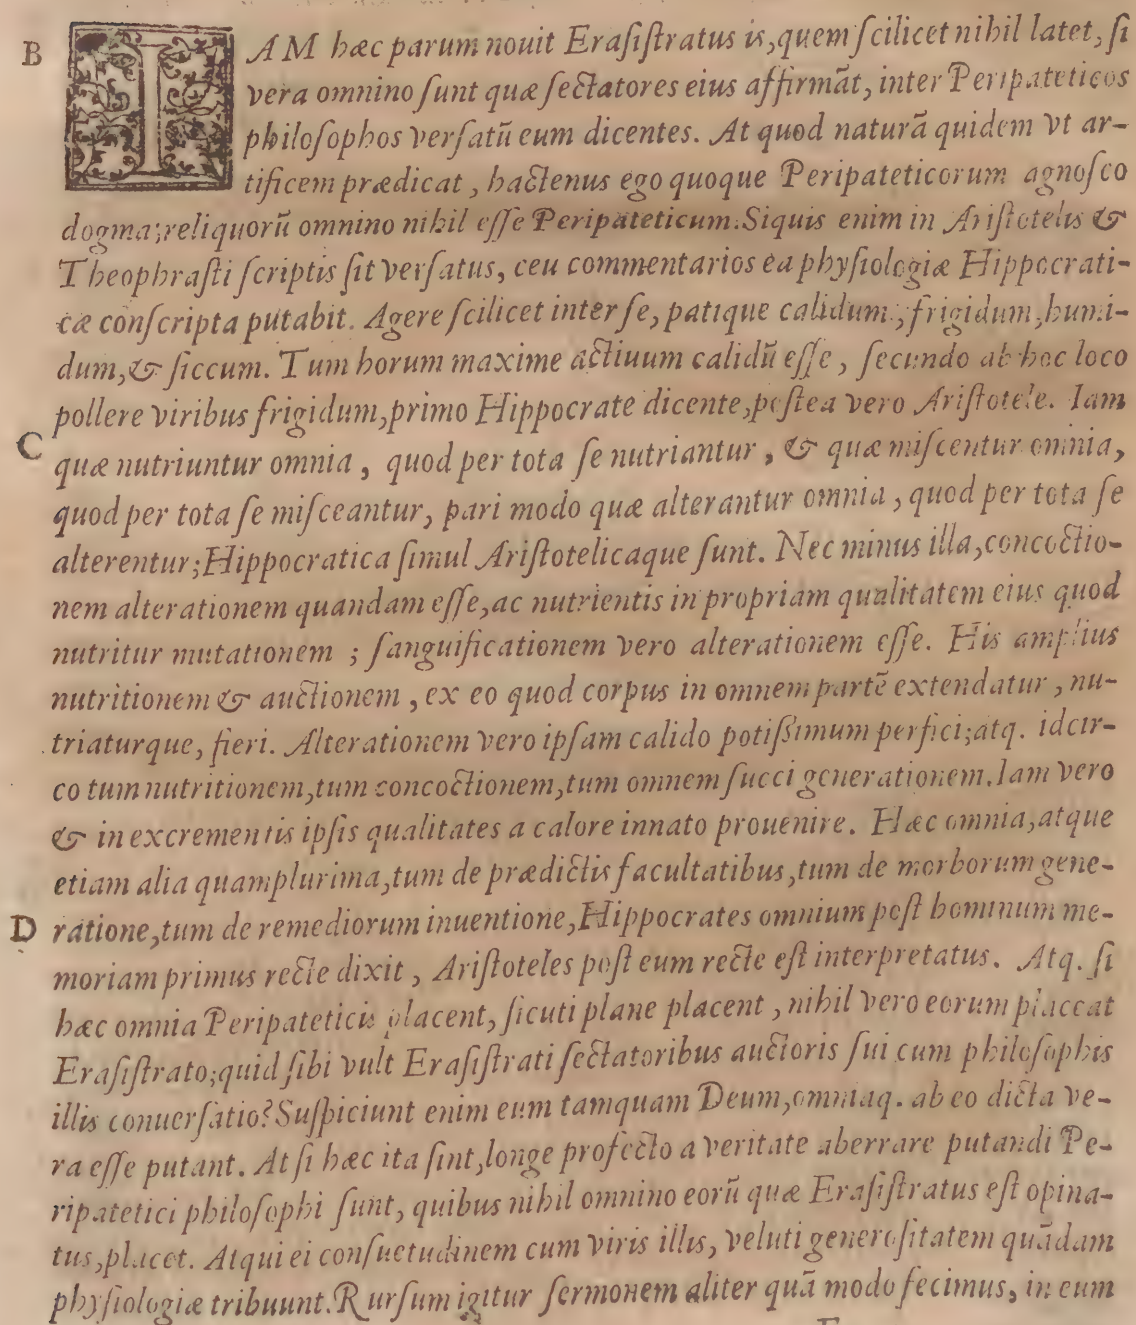 B IAM hæc parum nouit Erasistratus is, quem scilicet nihil latet, si
vera omnino sunt quæ sectatores eius affirmāt, inter Peripateticos
philosophos versatū eum dicentes. At quod naturā quidem vt ar-
tificem prædicat, hactenus ego quoque Peripateticorum agnosco
dogma; reliquorū omnino nihil esse Peripateticum. Siquis enim in Aristotelis &
Theophrasti scriptis sit versatus, ceu commentarios ea physiologiæ Hippocrati-
cæ conscripta putabit. Agere scilicet inter se, patique calidum, frigidum, humi-
dum, & siccum. Tum horum maxime actiuum calidū esse, secundo ab hoc loco
pollere viribus frigidum, primo Hippocrate dicente, postea vero Aristotele. Iam
C quæ nutriuntur omnia, quod per tota se nutriantur, & quæ miscentur omnia,
quod per tota se misceantur, pari modo quæ alterantur omnia, quod per tota se
alterentur; Hippocratica simul Aristotelicaque sunt. Nec minus illa, concoctio-
nem alterationem quandam esse, ac nutrientis in propriam qualitatem eius quod
nutritur mutationem; sanguificationem vero alterationem esse. His amplius
nutritionem & auctionem, ex eo quod corpus in omnem partē extendatur, nu-
triaturque, fieri. Alterationem vero ipsam calido potissimum perfici; atq. idcir-
co tum nutritionem, tum concoctionem, tum omnem succi generationem. Iam vero
& in excrementis ipsis qualitates a calore innato prouenire. Hæc omnia, atque
etiam alia quamplurima, tum de prædictis facultatibus, tum de morborum gene-
D ratione, tum de remediorum inuentione, Hippocrates omnium post hominum me-
moriam primus recte dixit, Aristoteles post eum recte est interpretatus. Atq. si
hæc omnia Peripateticis placent, sicuti plane placent, nihil vero eorum placeat
Erasistrato; quid sibi vult Erasistrati sectatoribus auctoris sui cum philosophis
illis conuersatio? Suspiciunt enim eum tamquam Deum, omniaq. ab eo dicta ve-
ra esse putant. At si hæc ita sint, longe profecto a veritate aberrare putandi Pe-
ripatetici philosophi sunt, quibus nihil omnino eorū quæ Erasistratus est opina-
tus, placet. Atqui ei consuetudinem cum viris illis, veluti generositatem quādam
physiologiæ tribuunt. Rursum igitur sermonem aliter quā modo fecimus, in eum